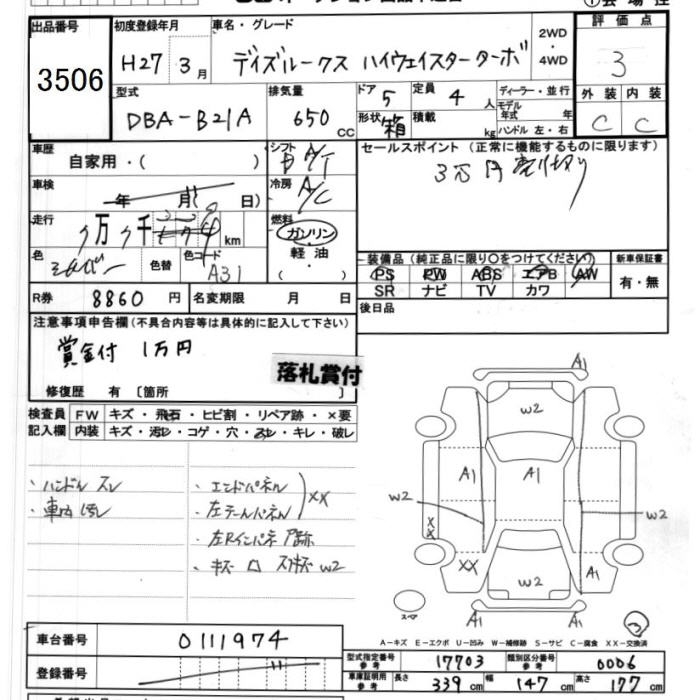 出品番号
3506
初度登録年月
H27年3月
車名・グレード
デイズルークス ハイウェイスターターボ
2WD
・
4WD
評価点
3
型式
DBA-B21A
排気量
650 CC
ドア 5
形状 箱
定員 4 人
積載 kg
ディーラー・並行
モデル年式 年
ハンドル 左・右
外装 内装
C C
車歴
自家用・( )
シフト A/T
セールスポイント (正常に機能するものに限ります)
3万円売り切り
車検
年 月( 日)
冷房 A/C
走行
万 千 km
燃料
ガソリン
軽油
・
( )
色
シルバー
色替
色コード
A31
装備品 (純正品に限り○をつけてください)
PS PW ABS エアB AW
SR ナビ TV カワ
新車保証書
有・無
R券 8860 円
名変期限 月 日
後日品
注意事項申告欄 (不具合内容等は具体的に記入して下さい)
賞金付 1万円
落札賞付
修復歴 有 〔箇所
検査員 FW キズ・飛石・ヒビ割・リペア跡・×要
記入欄 内装 キズ・汚レ・コゲ・穴・スレ・キレ・破レ
・ハンドル スレ
・車内 汚レ
・エンドパネル
・左テールパネル
XX
・左Rインパネ 凸跡
・キズ 凹 スリキズ W2
A1
W2
A1
A1
W2
W2
XX
XX
W2
A1
A1
A1
スペア
A-キズ E-エクボ U-凹み W-補修跡 S-サビ C-腐食 XX-交換済
車台番号 0111974
登録番号
型式指定番号 参考 17703
類別区分番号 参考 0006
車庫証明用 参考
長さ 339 cm
幅 147 cm
高さ 177 cm